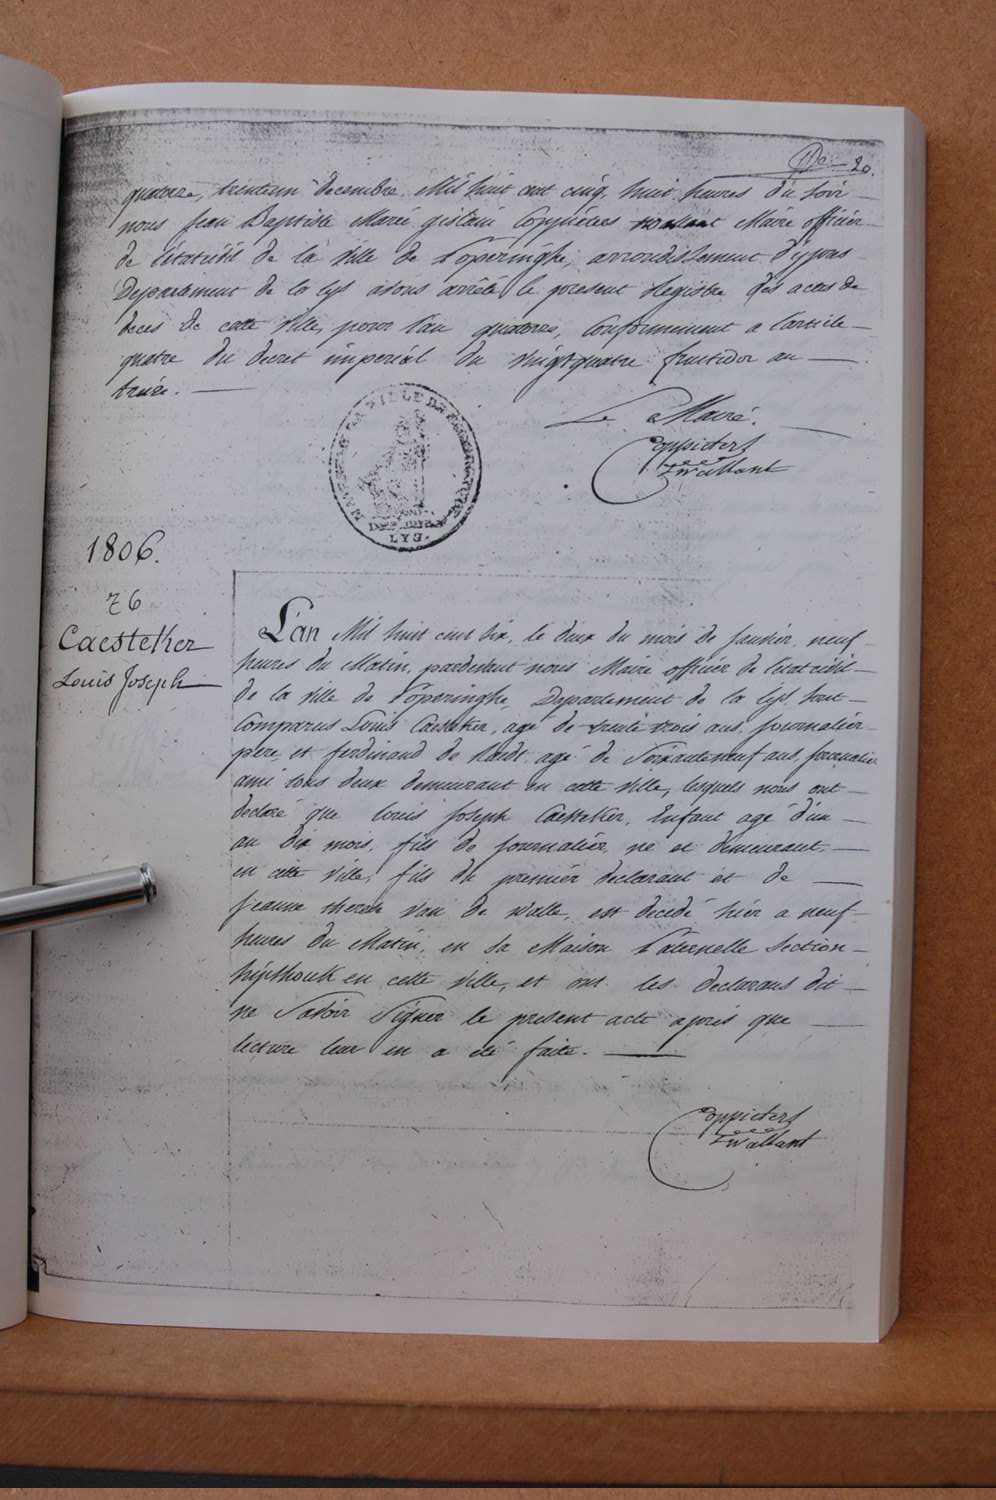 20.
quatorze, trente un decembre Mil huit cent cinq, huit heures du soir
nous Jean Baptiste Marie gislain Coppieters Maire officier
de l'état civil de la Ville de Poperinghe, arrondissement d'ypres
Departement de la Lys avons arrêté le present Registre des actes de
deces de cette Ville, pour l'an quatorze, Conformement a l'article
quatre du decret imperial du vingt quatre fructidor an
treize.
Le Maire.
Coppieters
LYS.
1806.
Caesteker
Louis Joseph
L'an Mil huit cent six, le deux du mois de Janvier, neuf
heures du Matin, pardevant nous Maire officier de l'état civil
de la Ville de Poperinghe, Departement de la Lys sont
Comparus Louis Caesteker, agé de trente trois ans, journalier
pere, et ferdinand de agé de Soixante neuf ans, journalier
ami tous deux demeurant en cette Ville, lesquels nous ont
declaré que Louis Joseph Caesteker, Enfant agé d'un
an dix mois, fils de journalier, né et demeurant
en cette Ville, fils du premier declarant et de
Jeanne therese Van de Walle, est decedé hier a neuf
heures du Matin, en sa Maison Paternelle Section
en cette Ville, et ont les declarans dit
ne Savoir Signer le present acte après que
lecture leur en a été faite.
Coppieters